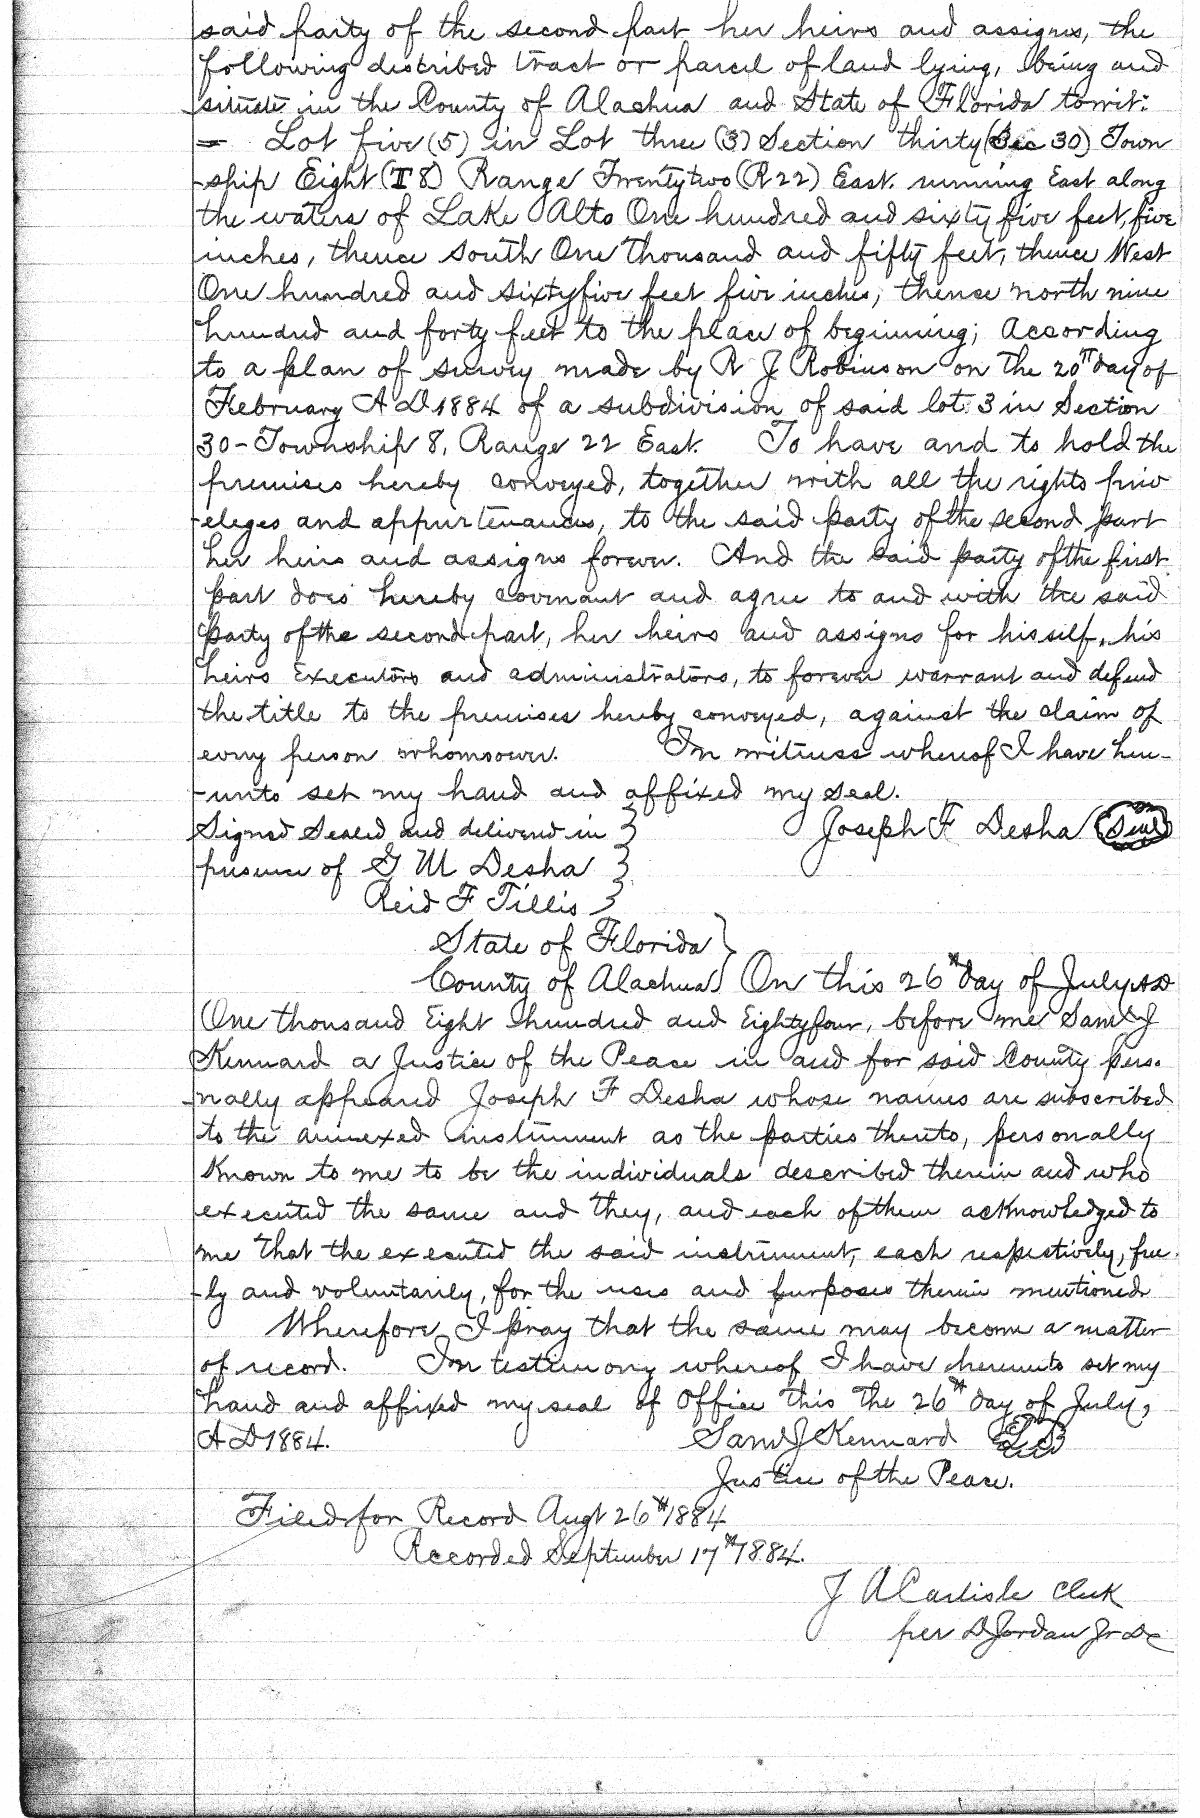 said party of the second part her heirs and assigns, the
following described tract or parcel of land lying, being and
situate in the County of Alachua and State of Florida towit:
= Lot five (5) in Lot three (3) Section thirty (Sec 30) Town
-ship Eight (T 8) Range Twentytwo (R 22) East. running East along
the waters of Lake Alto One hundred and sixty five feet, five
inches, thence South One thousand and fifty feet, thence West
One hundred and sixtyfive feet five inches, thence north nine
hundred and forty feet to the place of beginning; According
to a plan of survey made by R J Robinson on the 20th day of
February A D 1884 of a subdivision of said lot 3 in Section
30 - Township 8, Range 22 East. To have and to hold the
premises hereby conveyed, together with all the rights priv
-eleges and appurtenances, to the said party of the second part
her heirs and assigns forever. And the said party of the first
part does hereby covenant and agree to and with the said
party of the second part, her heirs and assigns for hisself, his
heirs Executors and administrators, to forever warrant and defend
the title to the premises hereby conveyed, against the claim of
every person whomsoever. In witness whereof I have here-
-unto set my hand and affixed my seal.
Signed Sealed and delivered in } Joseph F Desha (Seal)
presence of G M Desha }
Reid F Tillis }
State of Florida }
County of Alachua } On this 26th day of July AD
One thousand Eight hundred and Eightyfour, before me Saml J
Kennard a Justice of the Peace in and for said County perso-
-nally appeared Joseph F Desha whose names are subscribed
to the annexed instrument as the parties thereto, personally
Known to me to be the individuals described therein and who
executed the same and they, and each of them acknowledged to
me that the executed the said instrument, each respectively, free-
-ly and voluntarily, for the uses and purposes therein mentioned
Wherefore, I pray that the same may become a matter
of record. In testimony whereof I have hereunto set my
hand and affixed my seal of Office this the 26th day of July,
A D 1884. Saml J Kennard
Justice of the Peace.
Filed for Record Augt 26th 1884
Recorded September 17th 1884.
J A Carlisle Clerk
per D Jordan Jr DC